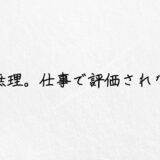 無理。仕事で評価され